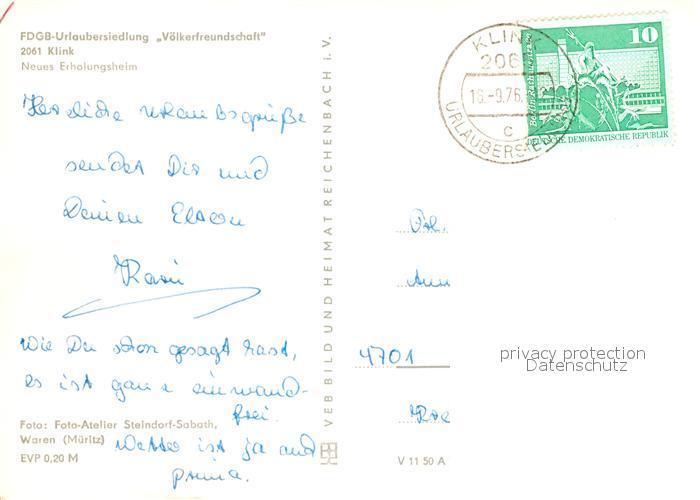 FDGB-Urlaubersiedlung „Völkerfreundschaft"
2061 Klink
Neues Erholungsheim
Herzliche Urlaubsgrüße
sendet Dir und
Deinen Eltern
Karin
Wie Du schon gesagt hast,
es ist ganz einwand-
frei.
Wetter ist ja auch
prima.
Foto: Foto-Atelier Steindorf-Sabath,
Waren (Müritz)
EVP 0,20 M
VEB BILD UND HEIMAT REICHENBACH i. V.
V 11 50 A
KLINK
206
16.-9.76.
c
URLAUBERSIEDLUNG
10
DEUTSCHE DEMOKRATISCHE REPUBLIK
4701
privacy protection
Datenschutz